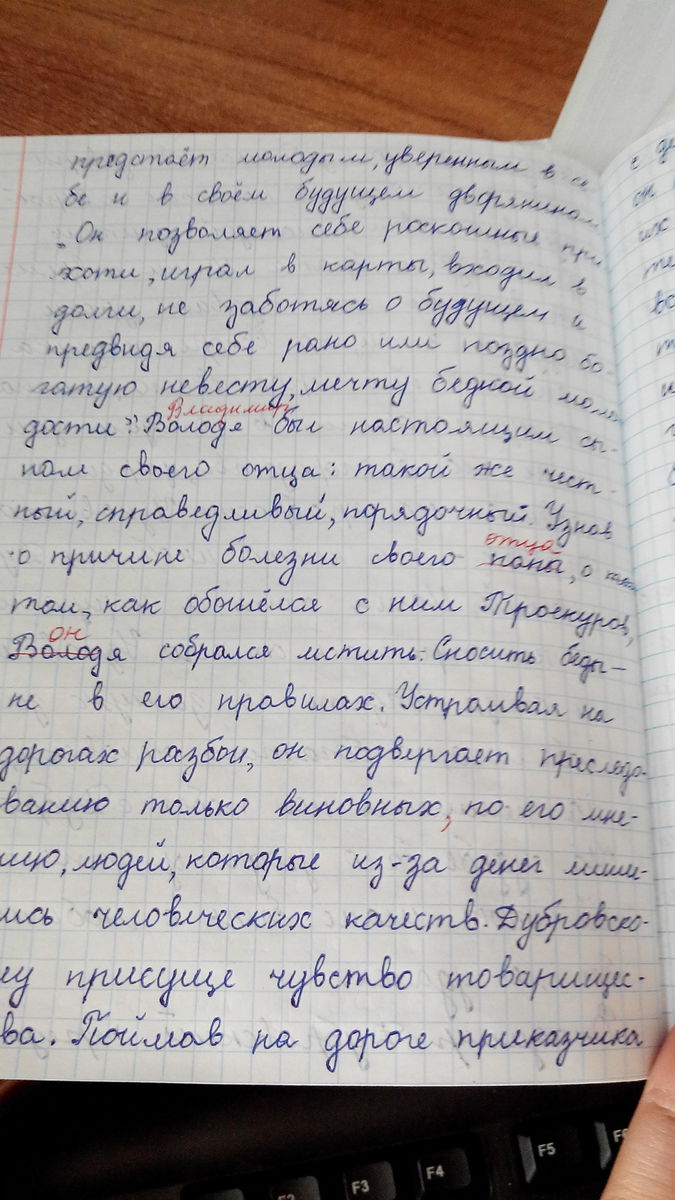 предстаёт молодым, уверенным в се
бе и в своём будущем дворянином
„Он позволяет себе роскошные при
хоти, играл в карты, входил в
долги, не заботясь о будущем и
предвидя себе рано или поздно бо-
гатую невесту, мечту бедной моло
дости". Володя был настоящим сы-
Владимир
ном своего отца: такой же чест-
ный, справедливый, порядочный. Узнав
о причине болезни своего папы, о
отца
том, как обошёлся с ним Троекуров,
Володя собрался мстить. Сносить беды-
он
не в его правилах. Устраивая на
дорогах разбои, он подвергает преследо-
ванию только виновных, по его мне-
нию, людей, которые из-за денег лиши-
ись человеческих качеств. Дубровско-
му присуще чувство товарищес-
ва. Поймав на дороге приказчика
с
он
их
F3
F4
F5